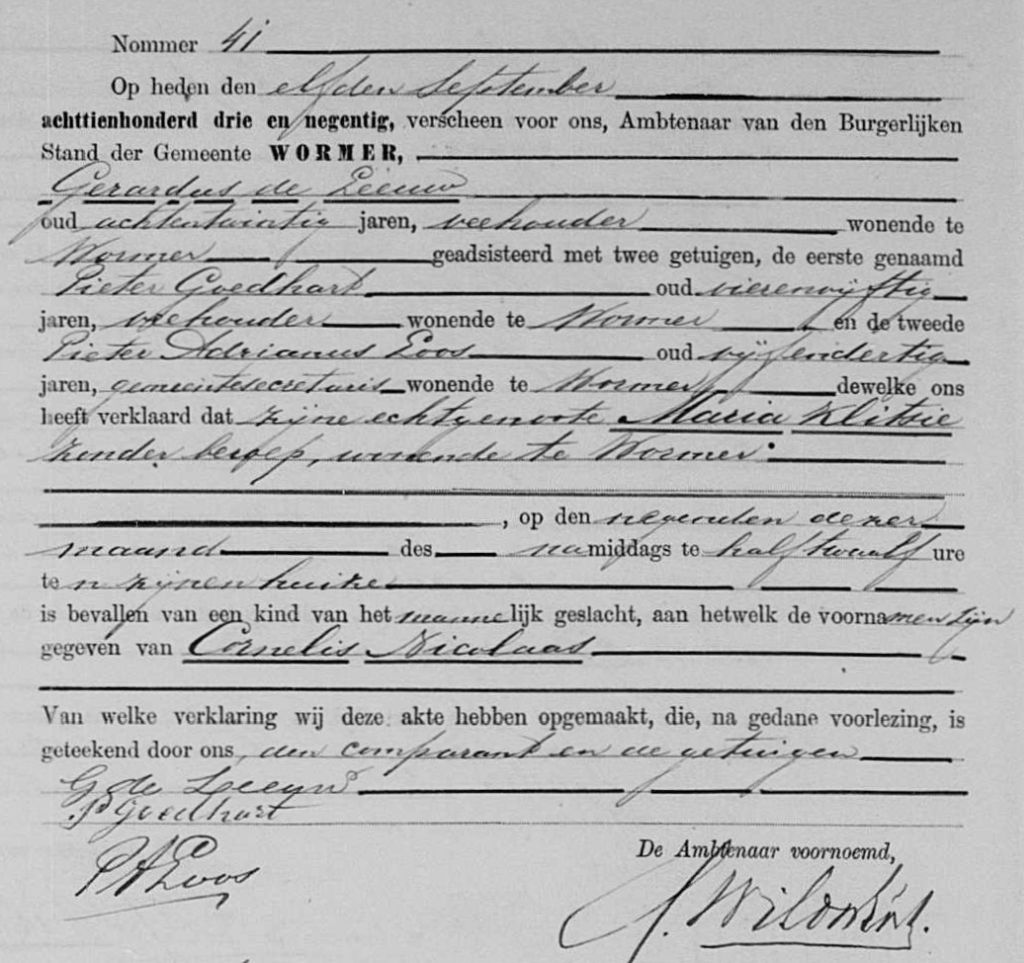 Nommer 41
Op heden den elfden September
achttienhonderd drie en negentig, verscheen voor ons, Ambtenaar van den Burgerlijken
Stand der Gemeente WORMER,
Gerardus de Leeuw
oud achtentwintig jaren, veehouder wonende te
Wormer geadsisteerd met twee getuigen, de eerste genaamd
Pieter Goedhart oud vierenvijftig
jaren, veehouder wonende te Wormer en de tweede
Pieter Adrianus Loos oud vijfendertig
jaren, gemeentesecretaris wonende te Wormer, dewelke ons
heeft verklaard dat zijne echtgenoote Maria Klitsie
zonder beroep, wonende te Wormer
, op den negenden dezer
maand des namiddags te half twaalf ure
te n zijnen huize
is bevallen van een kind van het mannelijk geslacht, aan hetwelk de voornamen zijn
gegeven van Cornelis Nicolaas
Van welke verklaring wij deze akte hebben opgemaakt, die, na gedane voorlezing, is
geteekend door ons, den comparant en de getuigen
G de Leeuw
P Goedhart
P A Loos
De Ambtenaar voornoemd,